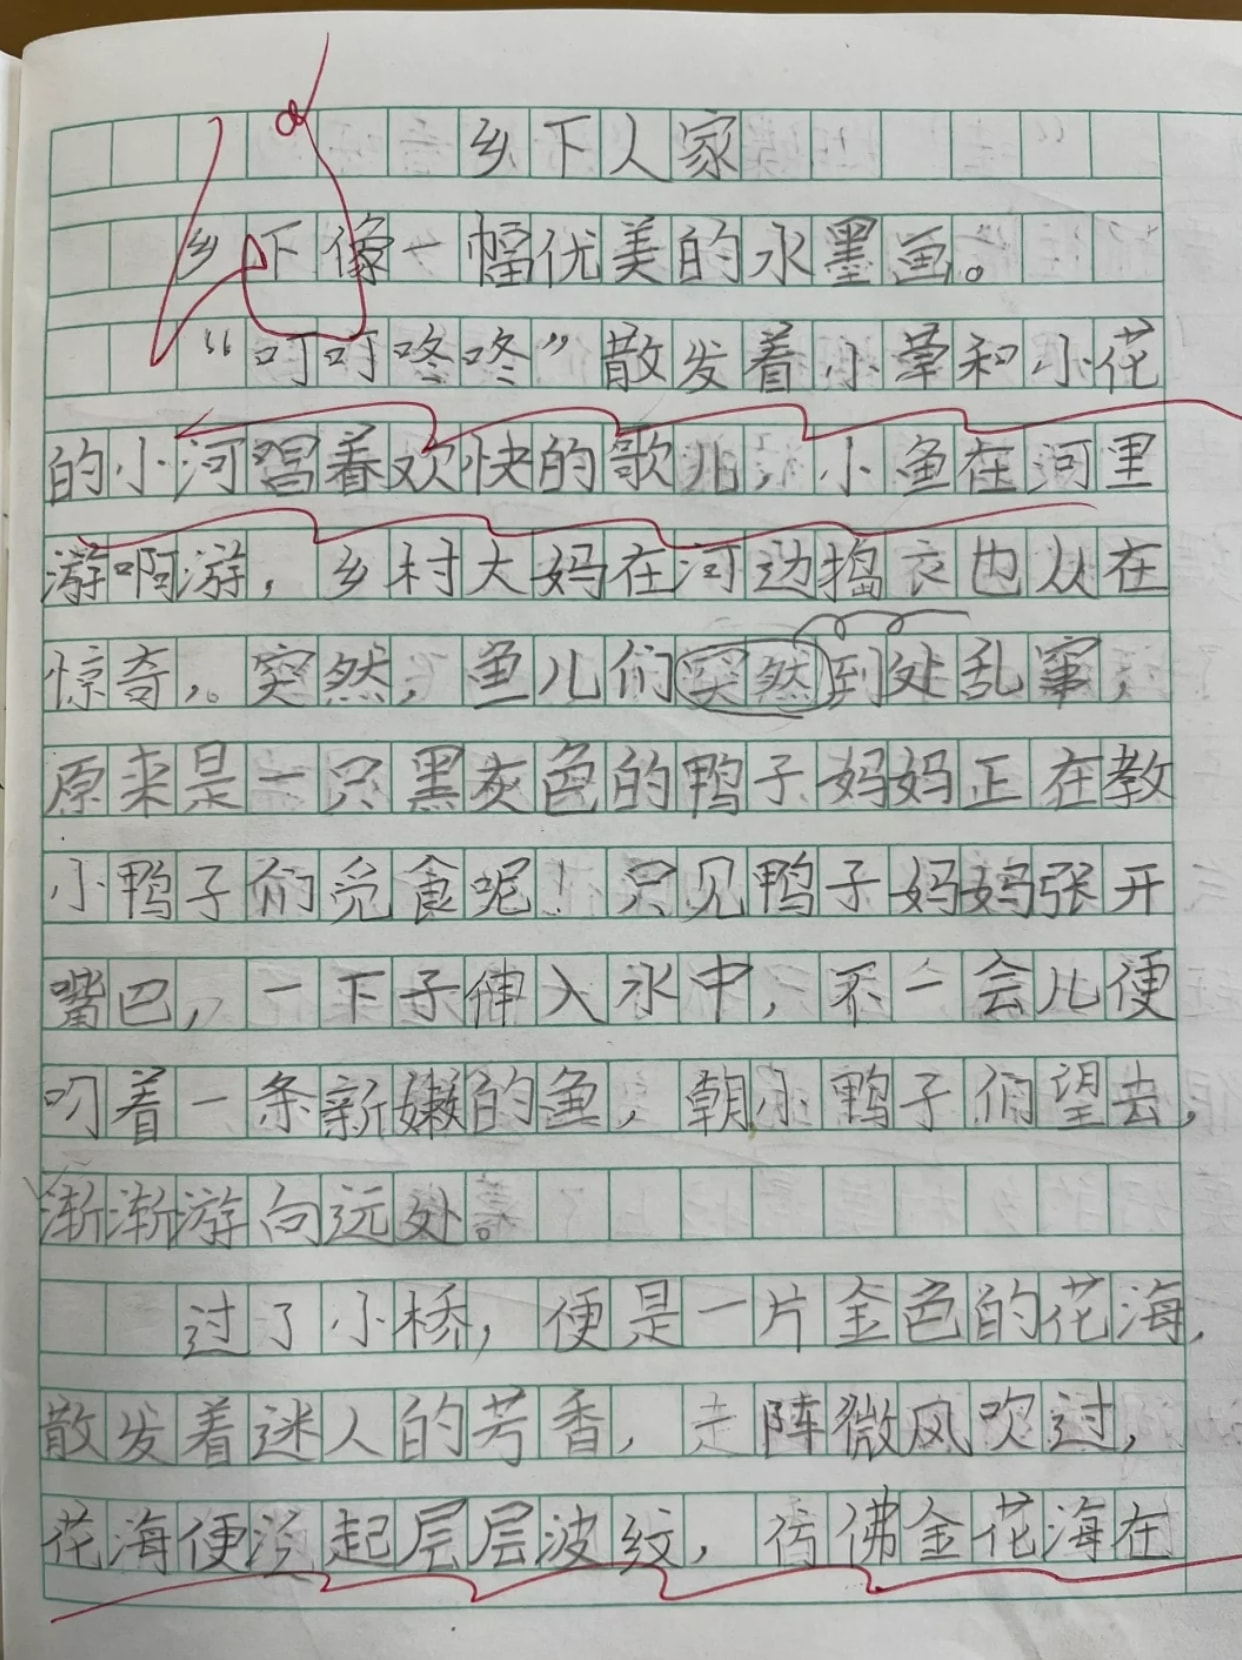 乡下人家
乡下像一幅优美的水墨画。
“叮叮咚咚”散发着小草和小花
的小河唱着欢快的歌儿，小鱼在河里
游啊游，乡村大妈在河边捣衣也从在
惊奇。突然，鱼儿们突然到处乱窜，
原来是一只黑灰色的鸭子妈妈正在教
小鸭子们觅食呢！只见鸭子妈妈张开
嘴巴，一下子伸入水中，不一会儿便
叨着一条新嫩的鱼，朝小鸭子们望去，
渐渐游向远处。
过了小桥，便是一片金色的花海，
散发着迷人的芳香，走阵微风吹过，
花海便泛起层层波纹，仿佛金花海在